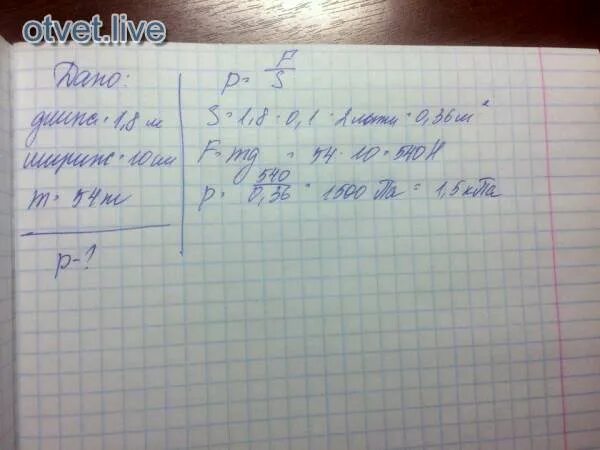 otvet.live
Дано:
длина = 1,8 м
ширин = 10 см
m = 54
p - ?
p = F/S
S = 1,8 · 0,1 · 2 лыжи = 0,36 м²
F = mg = 54 · 10 = 540 Н
p = 540/0,36 = 1500 Па = 1,5 кПа